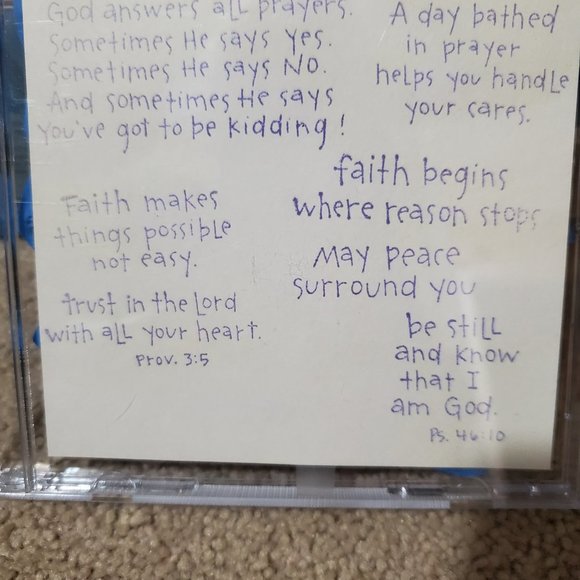 God answers aLL prayers.
Sometimes He says yes.
Sometimes He says No.
And sometimes He says
You've got to be kidding!
A day bathed
in prayer
helps you handLe
your cares.
faith begins
where reason stops
Faith makes
things possibLe
not easy.
May peace
surround you
trust in the Lord
with aLL your heart.
Prov. 3:5
be stiLL
and know
that I
am God.
Ps. 46:10